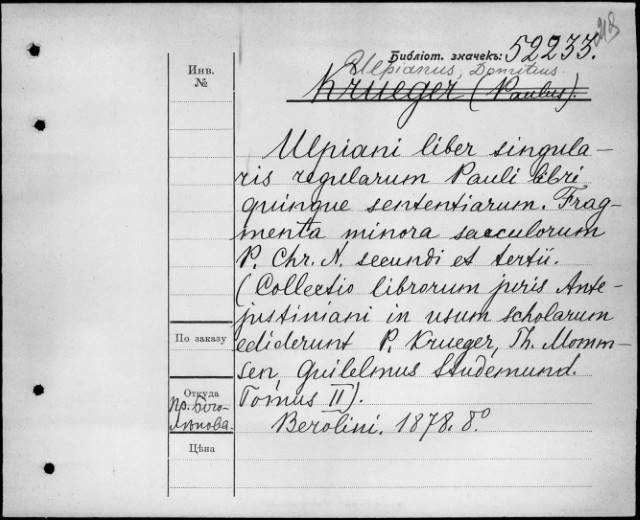 218
Библіот. значекъ: 52233.
Ulpianus, Domitius.
Krueger (Paulus).
Инв.
№
Ulpiani liber singula-
ris regularum Pauli libri
quinque sententiarum. Frag-
menta minora saeculorum
P. Chr. N. secundi et tertii.
(Collectio librorum juris Ante-
justiniani in usum scholarum
ediderunt P. Krueger, Th. Momm-
sen, Guilelmus Studemund.
Tomus II).
Berolini. 1878. 8°
По заказу
Откуда
пр. Бого-
лѣпова.
Цѣна